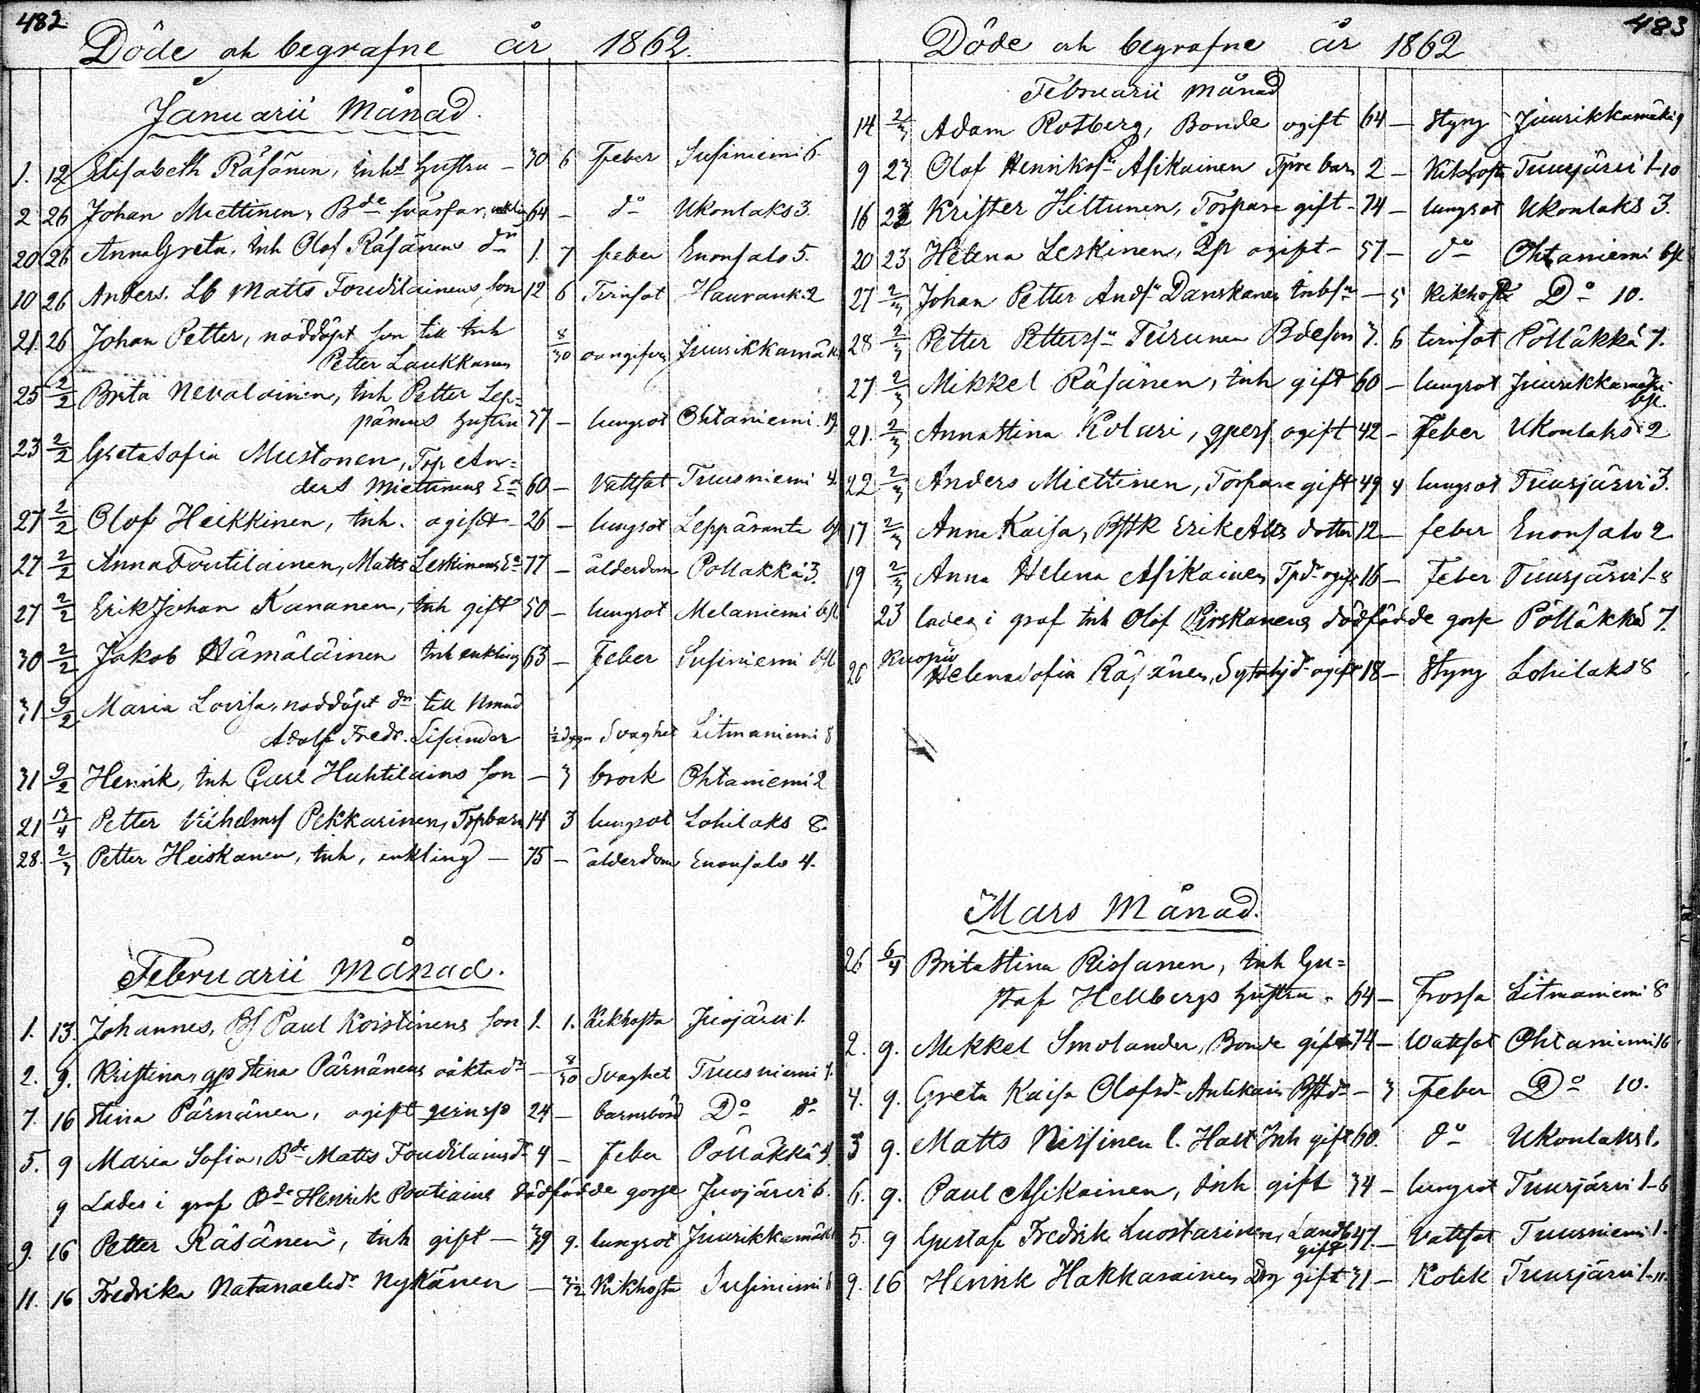 482
Döde och begrafne år 1862.
Januarii Månad.
1. 12 Elisabeth Räsänen, Inhs hustru — 30 6 feber Susiniemi 6.
2 26 Johan Miettinen, Bde svärfar, enkling 64 — do Ukonlaks 3.
20 26 Anna Greta, Inh Olof Räsänens dr 1. 7 feber Enonsalo 5.
10 26 Anders. Lb Matts Foudilainens son 12 6 Tvinsot Hauvank. 2
21. 26 Johan Petter, nöddöpt son till Inh
Petter Laukkanen 8/30 oangifven Juurikkamäki
25 2/2 Brita Nevalainen, Inh Petter Lep=
pänens hustru 37 — lungsot Ohtaniemi 19.
23 2/2 Greta Sofia Mustonen, Trp An=
ders Miettinens Ea 60 — Vattsot Tuusniemi 4.
27 2/2 Olof Heikkinen, Inh. ogift 26 — lungsot Leppäranta
27 2/2 Anna Foutilainen, Matts Leskinens Ea 77 — ålderdom Pölläkkä 3.
27 2/2 Erik Johan Kananen, Inh gift 50 — lungsot Melaniemi
30 2/2 Jakob Hämäläinen Inh enkling 63 — Feber Susiniemi
31 9/2 Maria Lovisa, nöddöpt dr till
Adolf Fredr. 1/2 dygn Svaghet Litmaniemi 8
31 9/2 Henrik, Inh Carl Huhtilains son — 3 brock Ohtaniemi 2
21 13/4 Petter Vilhelmss Pekkarinen, Trpbarn 14 3 lungsot Lohilaks 8.
28. 2/3 Petter Heiskanen, Inh, enkling — 75 — ålderdom Enonsalo 4.
Februarii Månad.
1. 13. Johannes, Bf Paul Koistinens son 1. 1. Kikhosta Juojärvi 1.
2. 9. Kristina, gps Stina Pärnänens oäkta dr — 8/30 Svaghet Tuusniemi 1.
7. 16 Stina Pärnänen, ogift 24 — barnsbörd Do do
5. 9 Maria Sofia, Bde Matts Foudilains dr 4 — Feber Pölläkkä 9.
9 Lades i graf Bde Henrik Poutiains dödfödde gosse Juojärvi 6.
9. 16 Petter Räsänen, Inh gift — 39 9. lungsot Juurikkamäki
11. 16 Fredrika Natanaelsdr Nykänen — 3/12 Kikhosta Susiniemi
483
Döde och begrafne år 1862
Februarii Månad
14 2/3 Adam Rotberg, Bonde ogift 64 — Styng Juurikkamäki 9
9 23 Olof Henrikssn Asikainen Tpre barn 2 — Kikhosta Tuusjärvi 1-10
16 23 Krister Hiltunen, Torpare gift — 74 — lungsot Ukonlaks 3.
20 23 Helena Leskinen, Pp ogift — 57 — do Ohtaniemi
27 2/3 Johan Petter Andsn Danskanen — 5 Kikhosta Do 10.
28 2/3 Petter Petterssn Tiirunen Bdeson 3. 6 tvinsot Pölläkkä 7.
27 2/3 Mikkel Räsänen, Inh gift 60 — lungsot Juurikkamäki
21. 2/3 Anna Stina Kolari, gpers ogift 42 — Feber Ukonlaks 2
22 2/3 Anders Miettinen, Torpare gift 49 4 lungsot Tuusjärvi 3.
17 2/3 Anna Kaisa, Erik dotter 12 — feber Enonsalo 2
19 2/3 Anna Helena Asikainen Tpdr ogift 16 — Feber Tuusjärvi 1-8
23 lades i graf Inh Olof Pirskanens dödfödde gosse Pölläkkä 7.
26 Kuopio Helena Sofia Räsänen, ogift 18 — Styng Lohilaks 8
Mars Månad.
26 6/4 Brita Stina Rissanen, Inh Gu=
staf Hellbergs hustru — 64 — Frossa Litmaniemi 8
2. 9. Mikkel Smolander, Bonde gift 74 — Wattsot Ohtaniemi 16
4. 9. Greta Kaisa Olofsdr — 3 Feber Do 10.
3 9. Matts Nissinen Inh gift 60. do Ukonlaks 1.
6. 9. Paul Asikainen, Inh gift 34 — lungsot Tuusjärvi 1-6
5. 9 Gustaf Fredrik Luostarinen, Landb gift 47 — Vattsot Tuusniemi 1.
9. 16 Henrik Hakkarainen Drg gift 31 — Kolik Tuusjärvi 1-11.